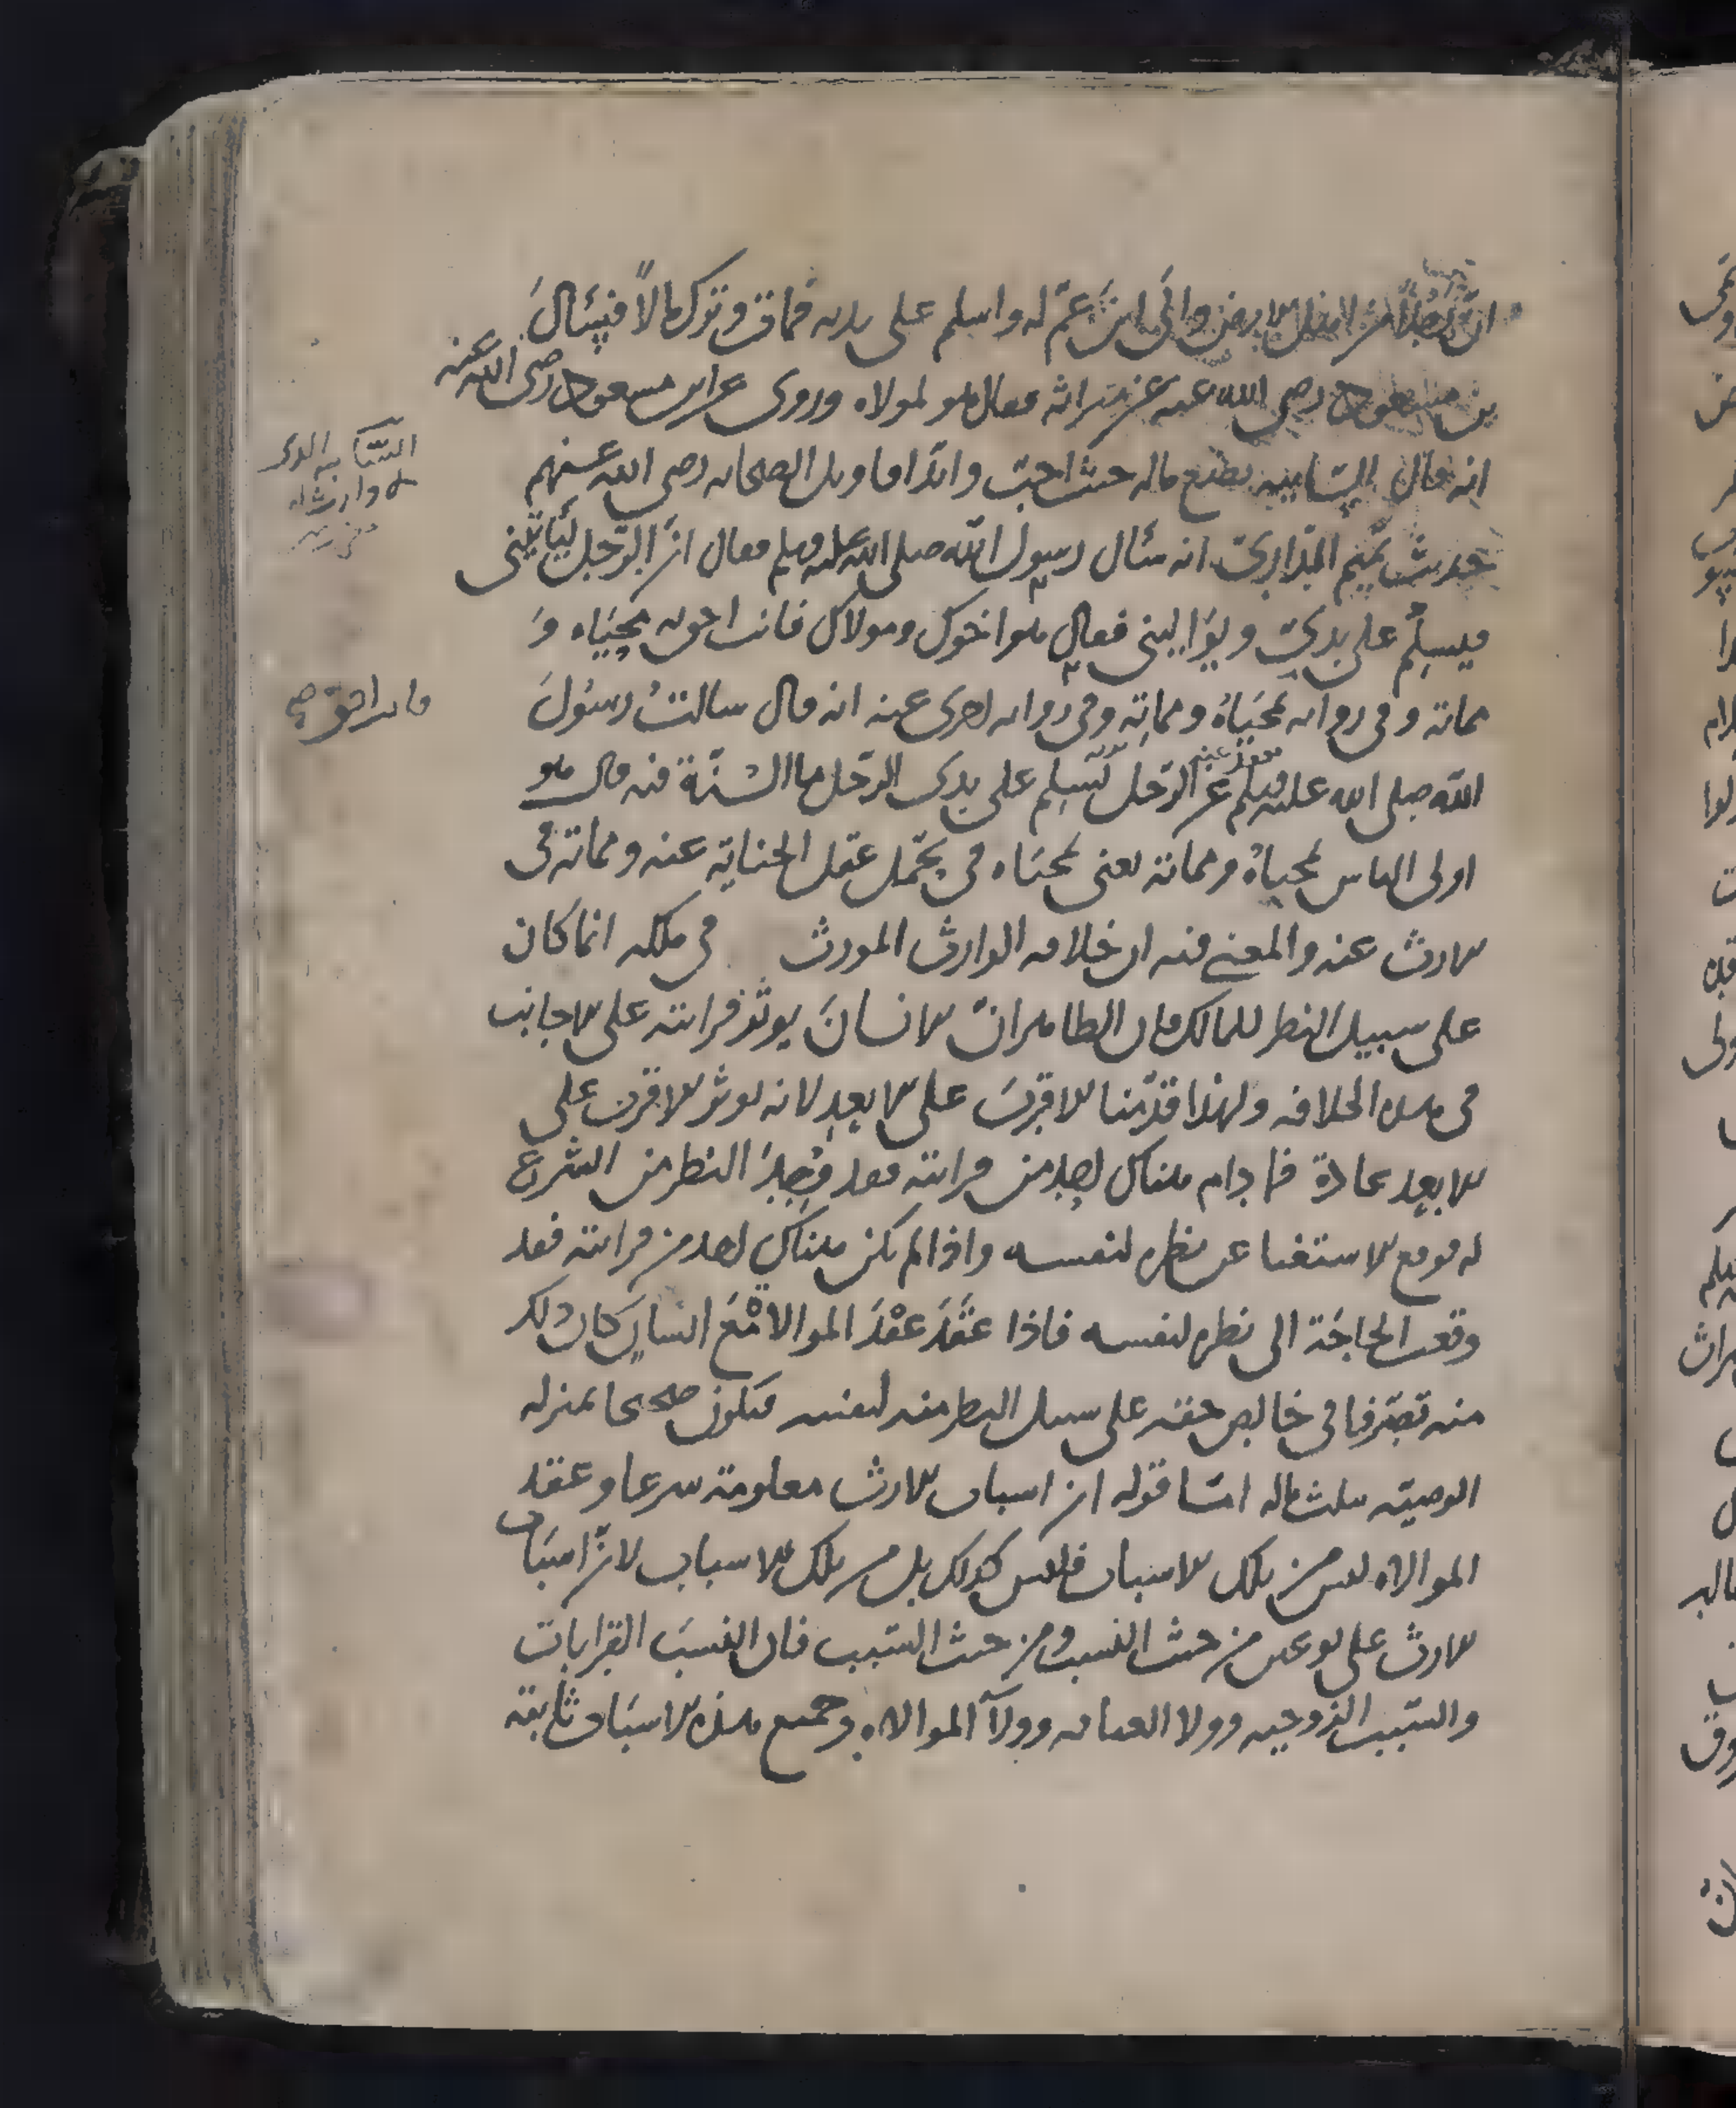 ان رجلا من اهل الارض والى ابن عم له واسلم على يديه فمات وترك مالا فسئال
بن مسعود رضى الله عنه عن ميراثه فقال هو لمولاه وروى عن ابن مسعود رضى الله عنه
انه قال السايبه يضع ماله حيث احب واما اقاويل الصحابه رضى الله عنهم
حديث تميم الدارى انه سئال رسول الله صلى الله عليه وسلم فقال ان الرجل ليأتينى
فيسلم على يدى ويواليني فقال هو اخوك ومولاك فانت احق به محياه و
مماته وفى روايه محياه ومماته وفى روايه اخرى عنه انه قال سالت رسول
الله صلى الله عليه وسلم عن الرجل يسلم على يدى الرجل ما السنة فيه قال هو
اولى الناس بمحياه ومماته يعنى بمحياه فى تحمل عقل الجناية عنه ومماته فى
الارث عنه والمعنى فيه ان خلافه الوارث المورث فى ملكه انما كان
على سبيل النظر للمالك فان الظاهر ان الانسان يوثر قرابته على الاجانب
فى هذه الخلافه ولهذا قدمنا الاقرب على الابعد لانه يوثر الاقرب على
الابعد عادة فما دام هناك احد من قرابته فقد وجد النظر من الشرع
له فوقع الاستغنا عن نظره لنفسه واذا لم يكن هناك احد من قرابته فقد
وقعت الحاجة الى نظره لنفسه فاذا عقد عقد الموالاة مع انسان كان ذلك
منه تصرفا فى خالص حقه على سبيل النظر منه لنفسه فيكون صحيحا بمنزله
الوصيه بثلث ماله اما قوله ان اسباب الارث معلومة شرعا وعقد
الموالاه ليس من تلك الاسباب فليس كذلك بل من تلك الاسباب لان اسباب
الارث على نوعين من حيث النسب ومن حيث السبب فان النسب القرابات
والسبب الزوجيه وولا العتاقه وولآ الموالاه وجميع هذه الاسباب ثابتة
السايبه الذى
لا وارث له
فانت احق صح